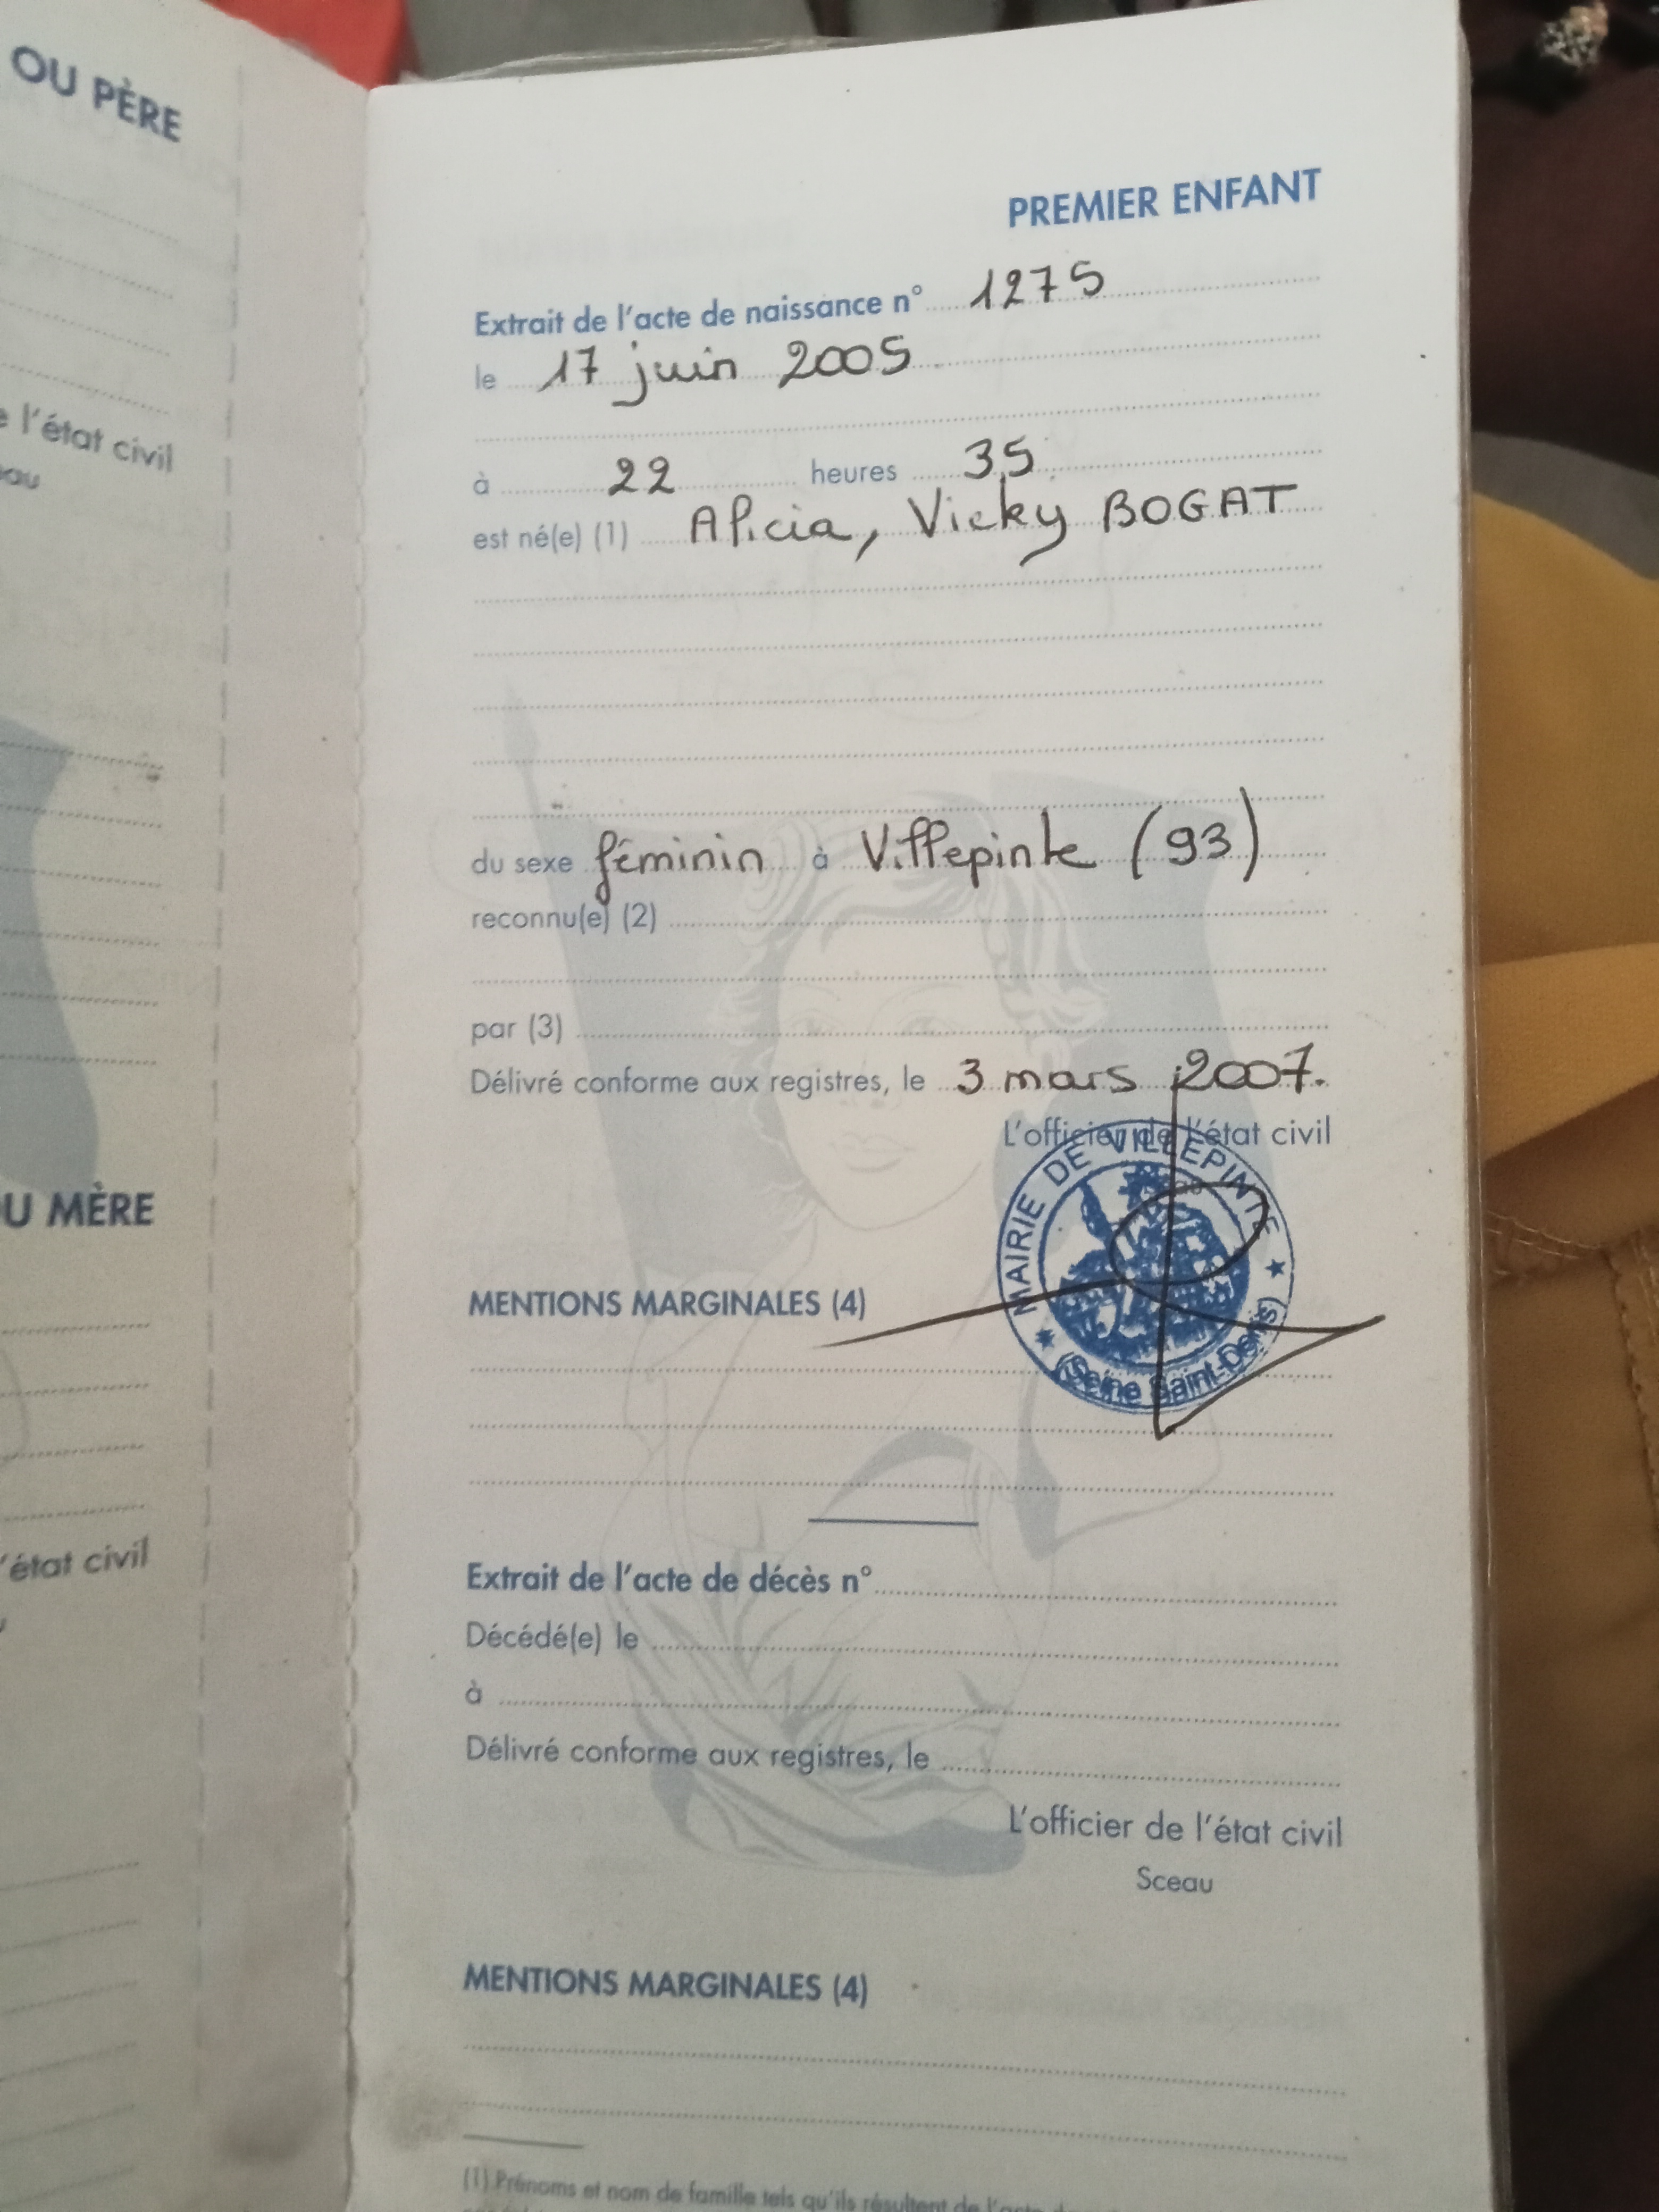 OU PÈRE
l'état civil
U MÈRE
état civil
PREMIER ENFANT
Extrait de l'acte de naissance n° 1275
le 17 juin 2005
à 22 heures 35
est né(e) (1) Alicia, Vicky BOGAT
du sexe féminin à Villepinte (93)
reconnu(e) (2)
par (3)
Délivré conforme aux registres, le 3 mars 2007.
L'officier de l'état civil
MAIRIE DE VILLEPINTE
(Seine Saint-Denis)
MENTIONS MARGINALES (4)
Extrait de l'acte de décès n°
Décédé(e) le
à
Délivré conforme aux registres, le
L'officier de l'état civil
Sceau
MENTIONS MARGINALES (4)
(1) Prénoms et nom de famille tels qu'ils résultent de l'acte